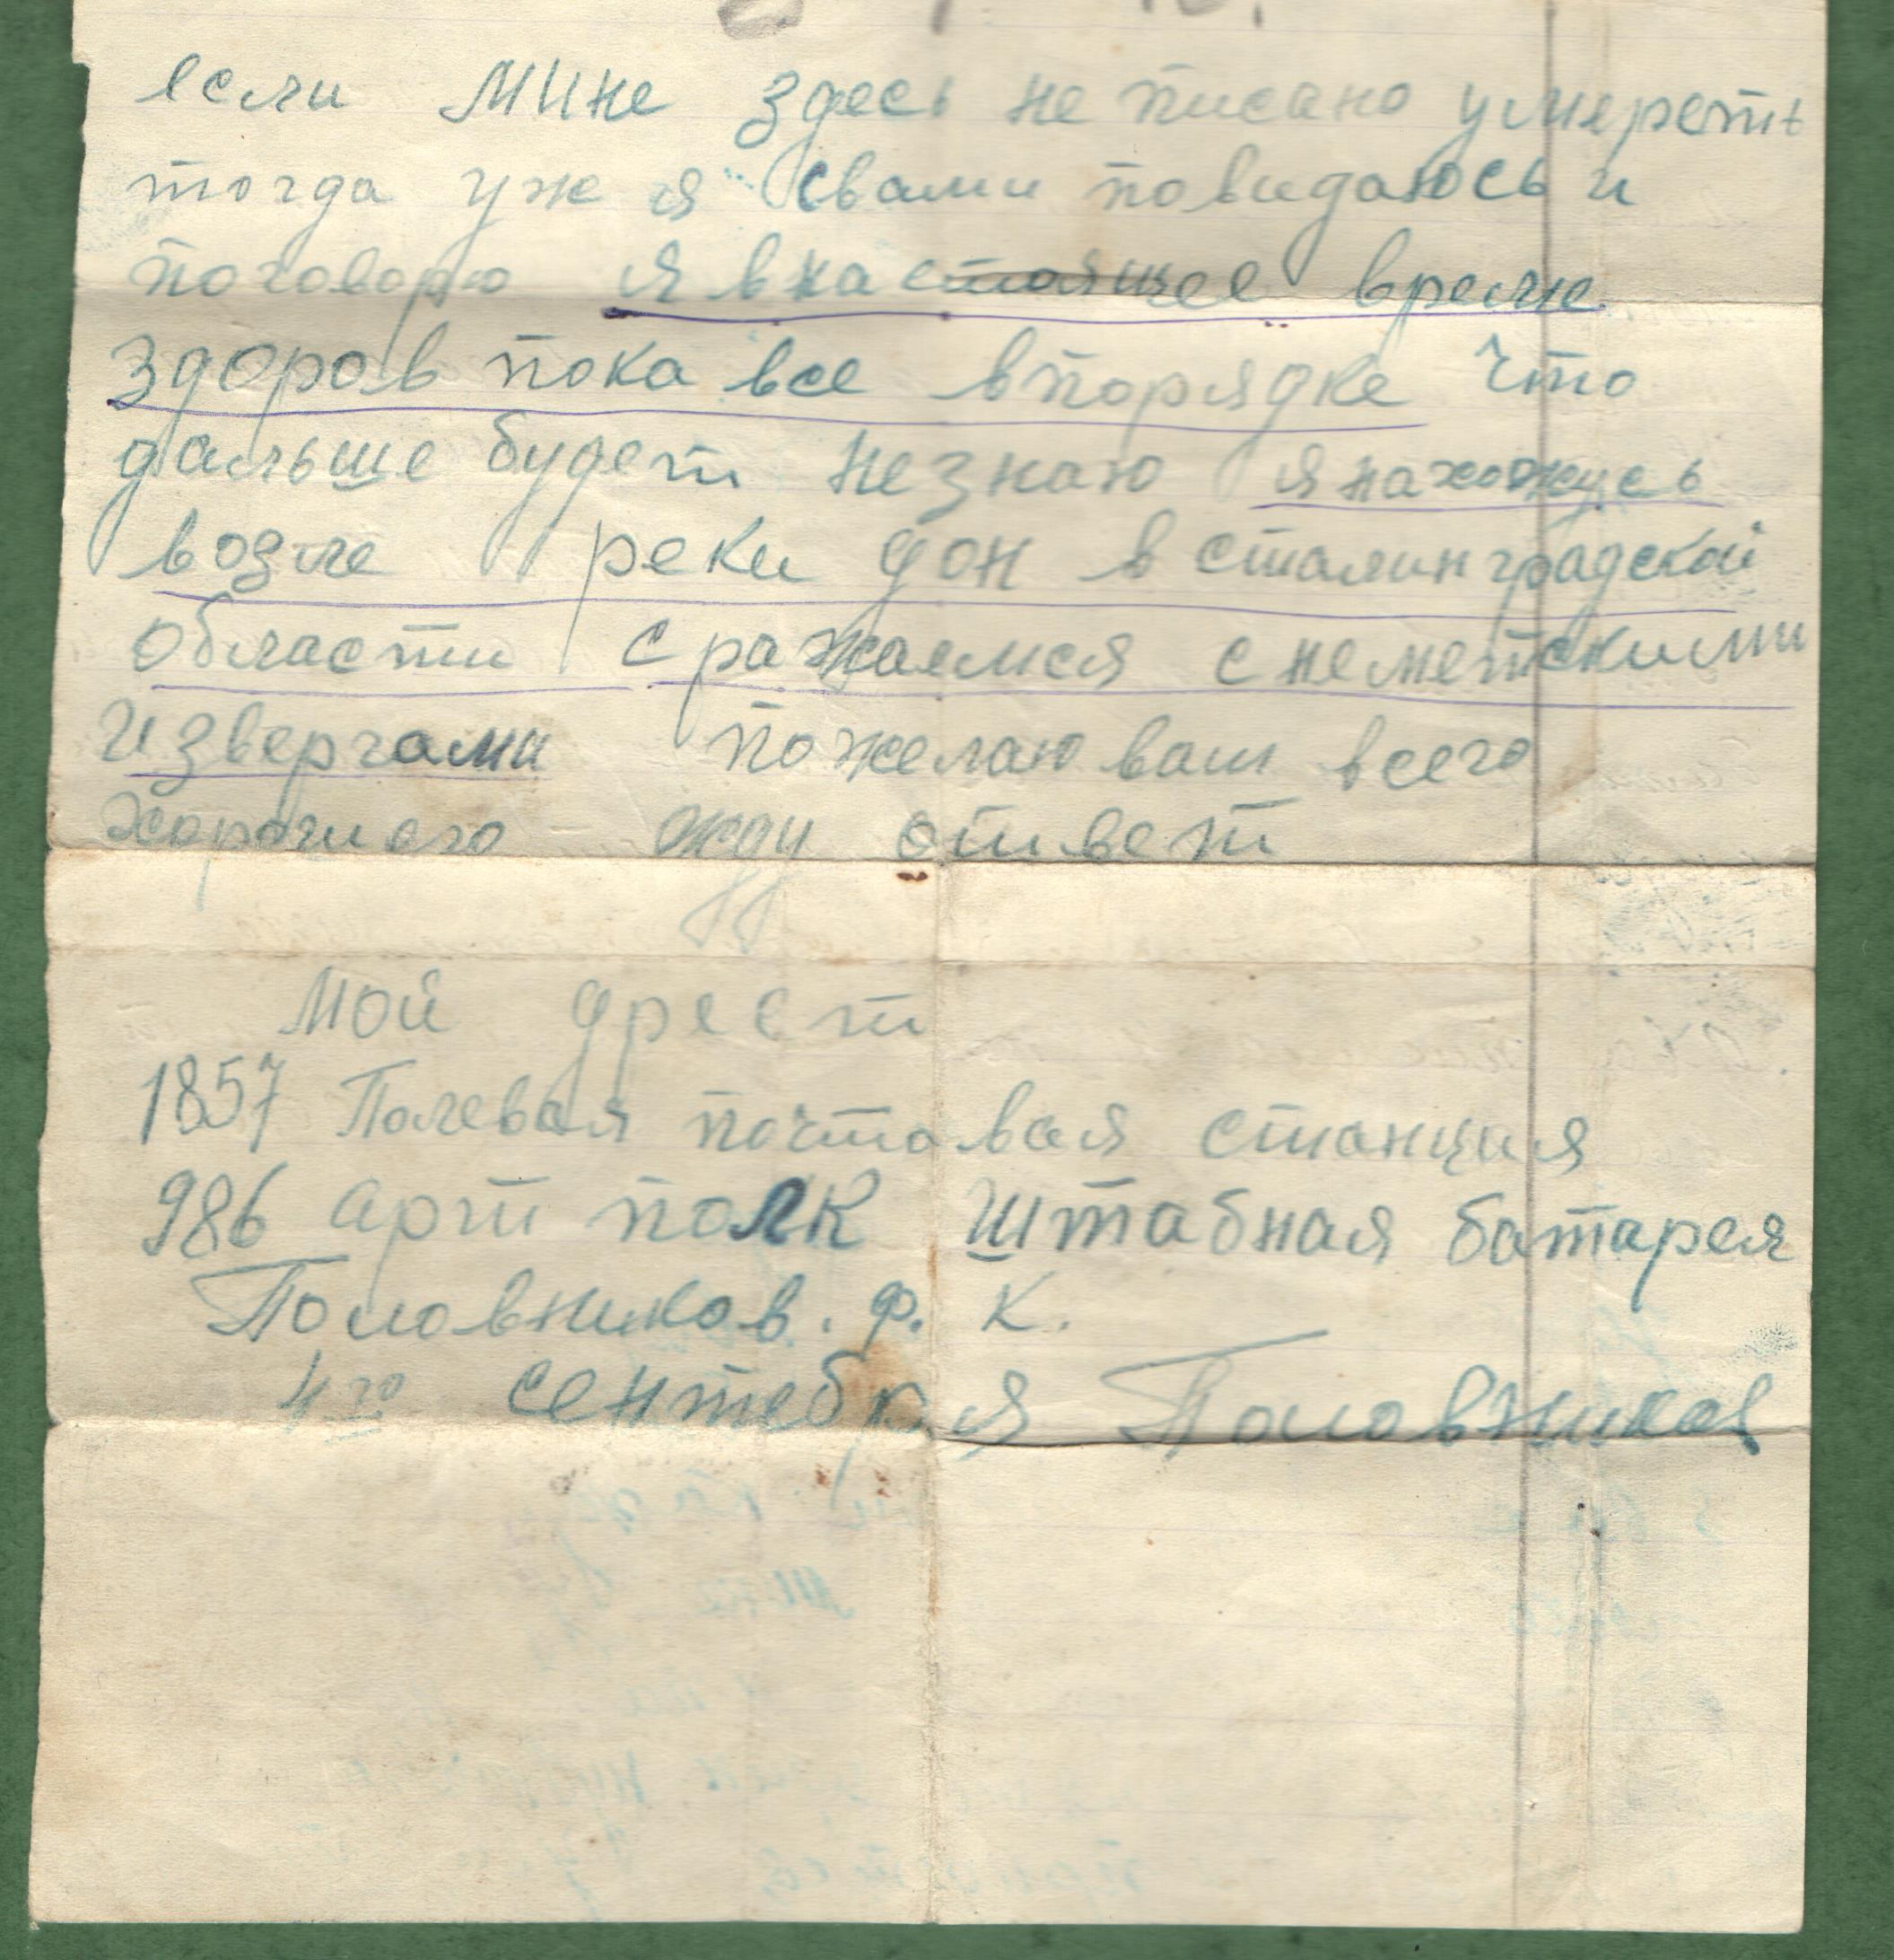 если мине здесь не писано умереть
тогда уж я свами повидаюсь и
поговорю я внастоящее время
здоров пока все впорядке что
дальше будет незнаю я нахожусь
возле реки дон в сталинградской
области сражаемся с неметскими
извергами пожелаю вам всего
хорошего жду ответ
мой дрест
1857 Полевая почтовая станция
986 арт полк Штабная батарея
Половников. Ф. К.
4го сентебря Половников